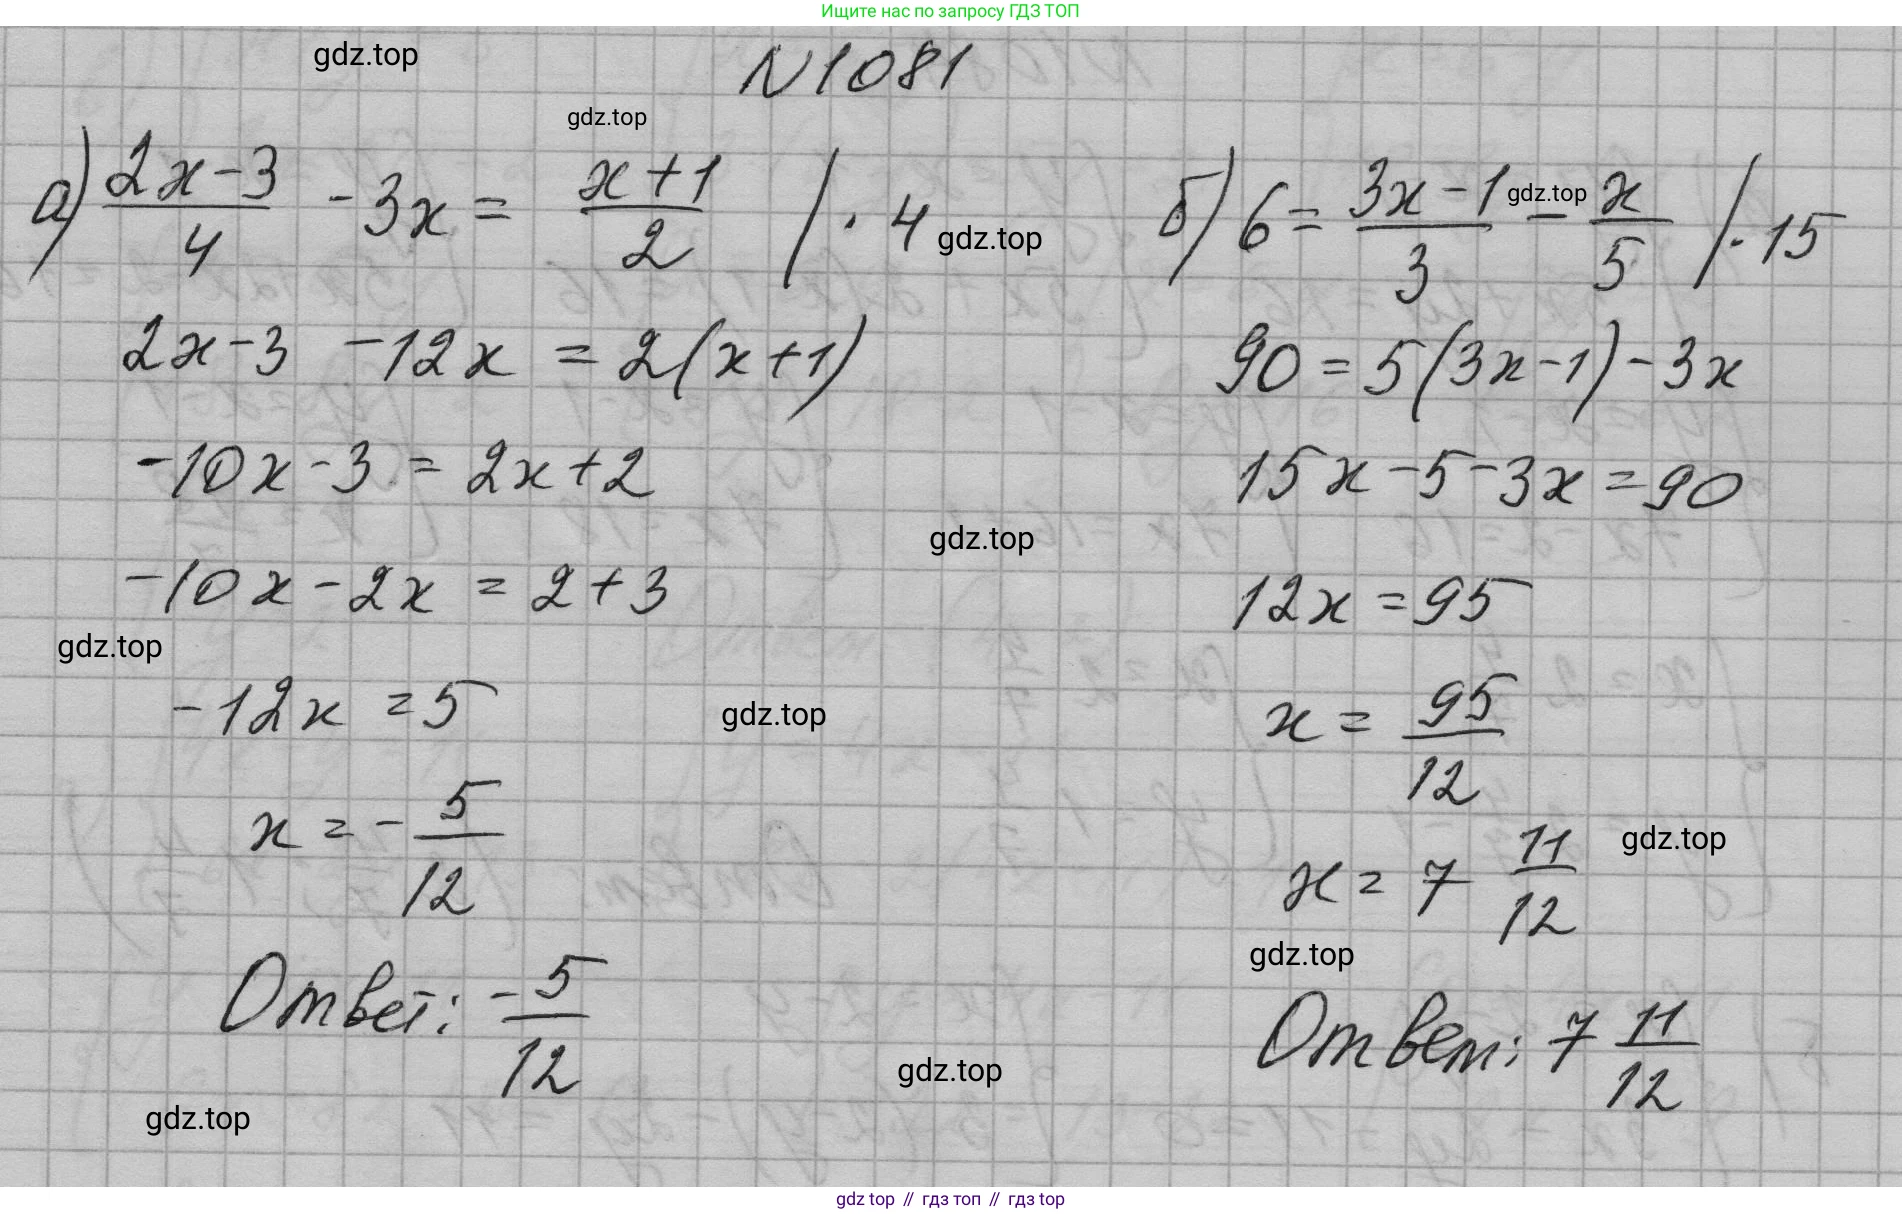 Ищите нас по запросу ГДЗ ТОП
gdz.top
N1081
gdz.top
а) (2x-3)/4 - 3x = (x+1)/2 / · 4
gdz.top
2x-3 -12x = 2(x+1)
-10x-3 = 2x+2
-10x-2x = 2+3
gdz.top
-12x = 5
x = -5/12
Ответ: -5/12
gdz.top
б) 6 = (3x-1)/3 - x/5 / · 15
gdz.top
90 = 5(3x-1)-3x
15x-5-3x = 90
gdz.top
12x = 95
gdz.top
x = 95/12
x = 7 11/12
gdz.top
gdz.top
Ответ: 7 11/12
gdz.top
gdz top // гдз топ // гдз top